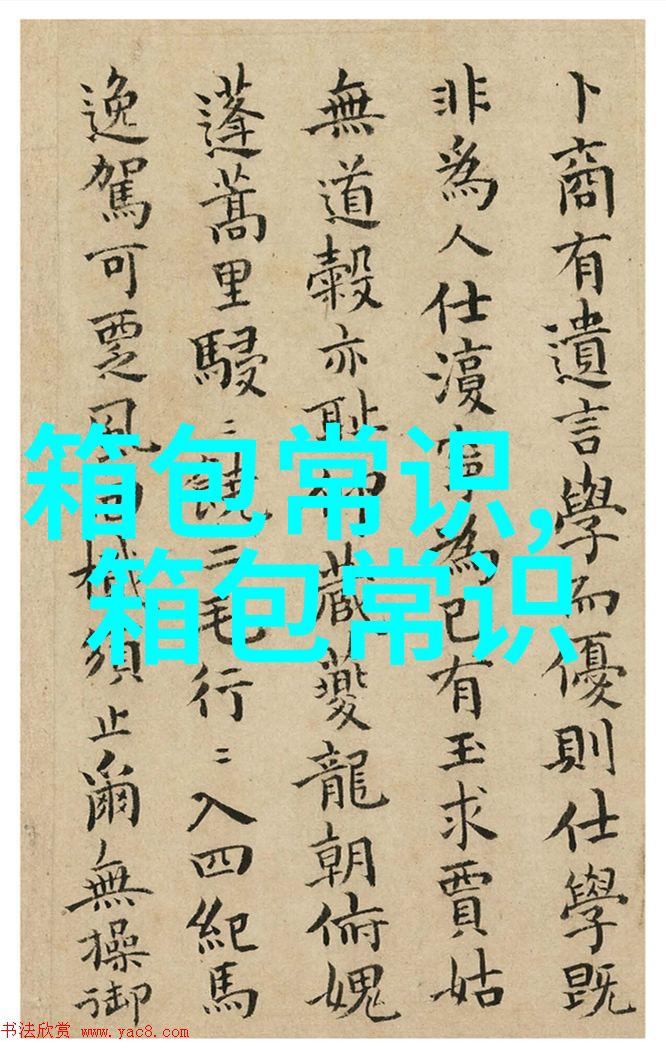 卜商有遺言學而優則仕學既
非為人仕為己有玉求賈姑
無道穀亦恥蔵夔龍朝俯媿
蓬蒿里駸〻二毛行〻入四紀馬
逸駕可覂須止爾無操御
箱包常识,
箱包常识
书法欣赏 www.yac8.com